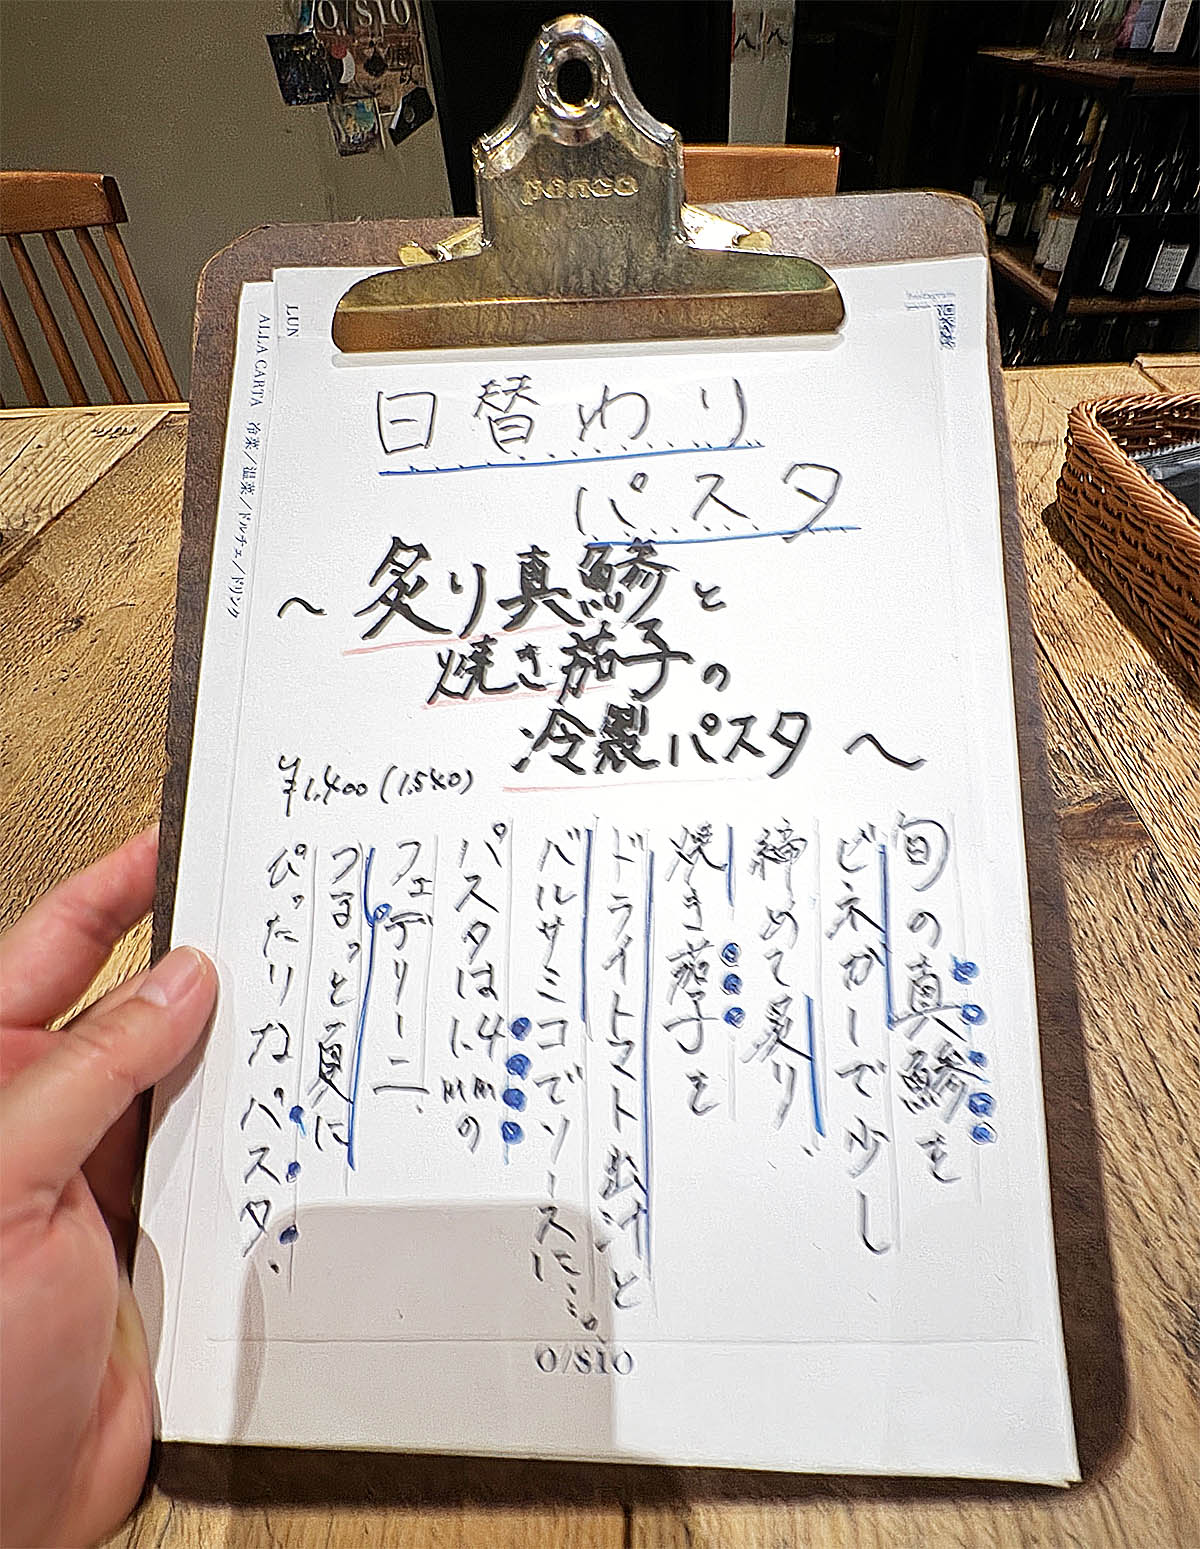 O/SIO
penco
LUN
ALLA CARTA 冷菜／温菜／ドルチェ／ドリンク
日替わり
パスタ
～炙り真鯵と
焼き茄子の
冷製パスタ～
¥1,400 (1,540)
旬の真鯵を
ビネガーで少し
締めて炙り、
焼き茄子を
ドライトマト出汁と
バルサミコでソースに…。
パスタは1.4mmの
フェデリーニ、
つるっと夏に
ぴったりなパスタ、
O/SIO